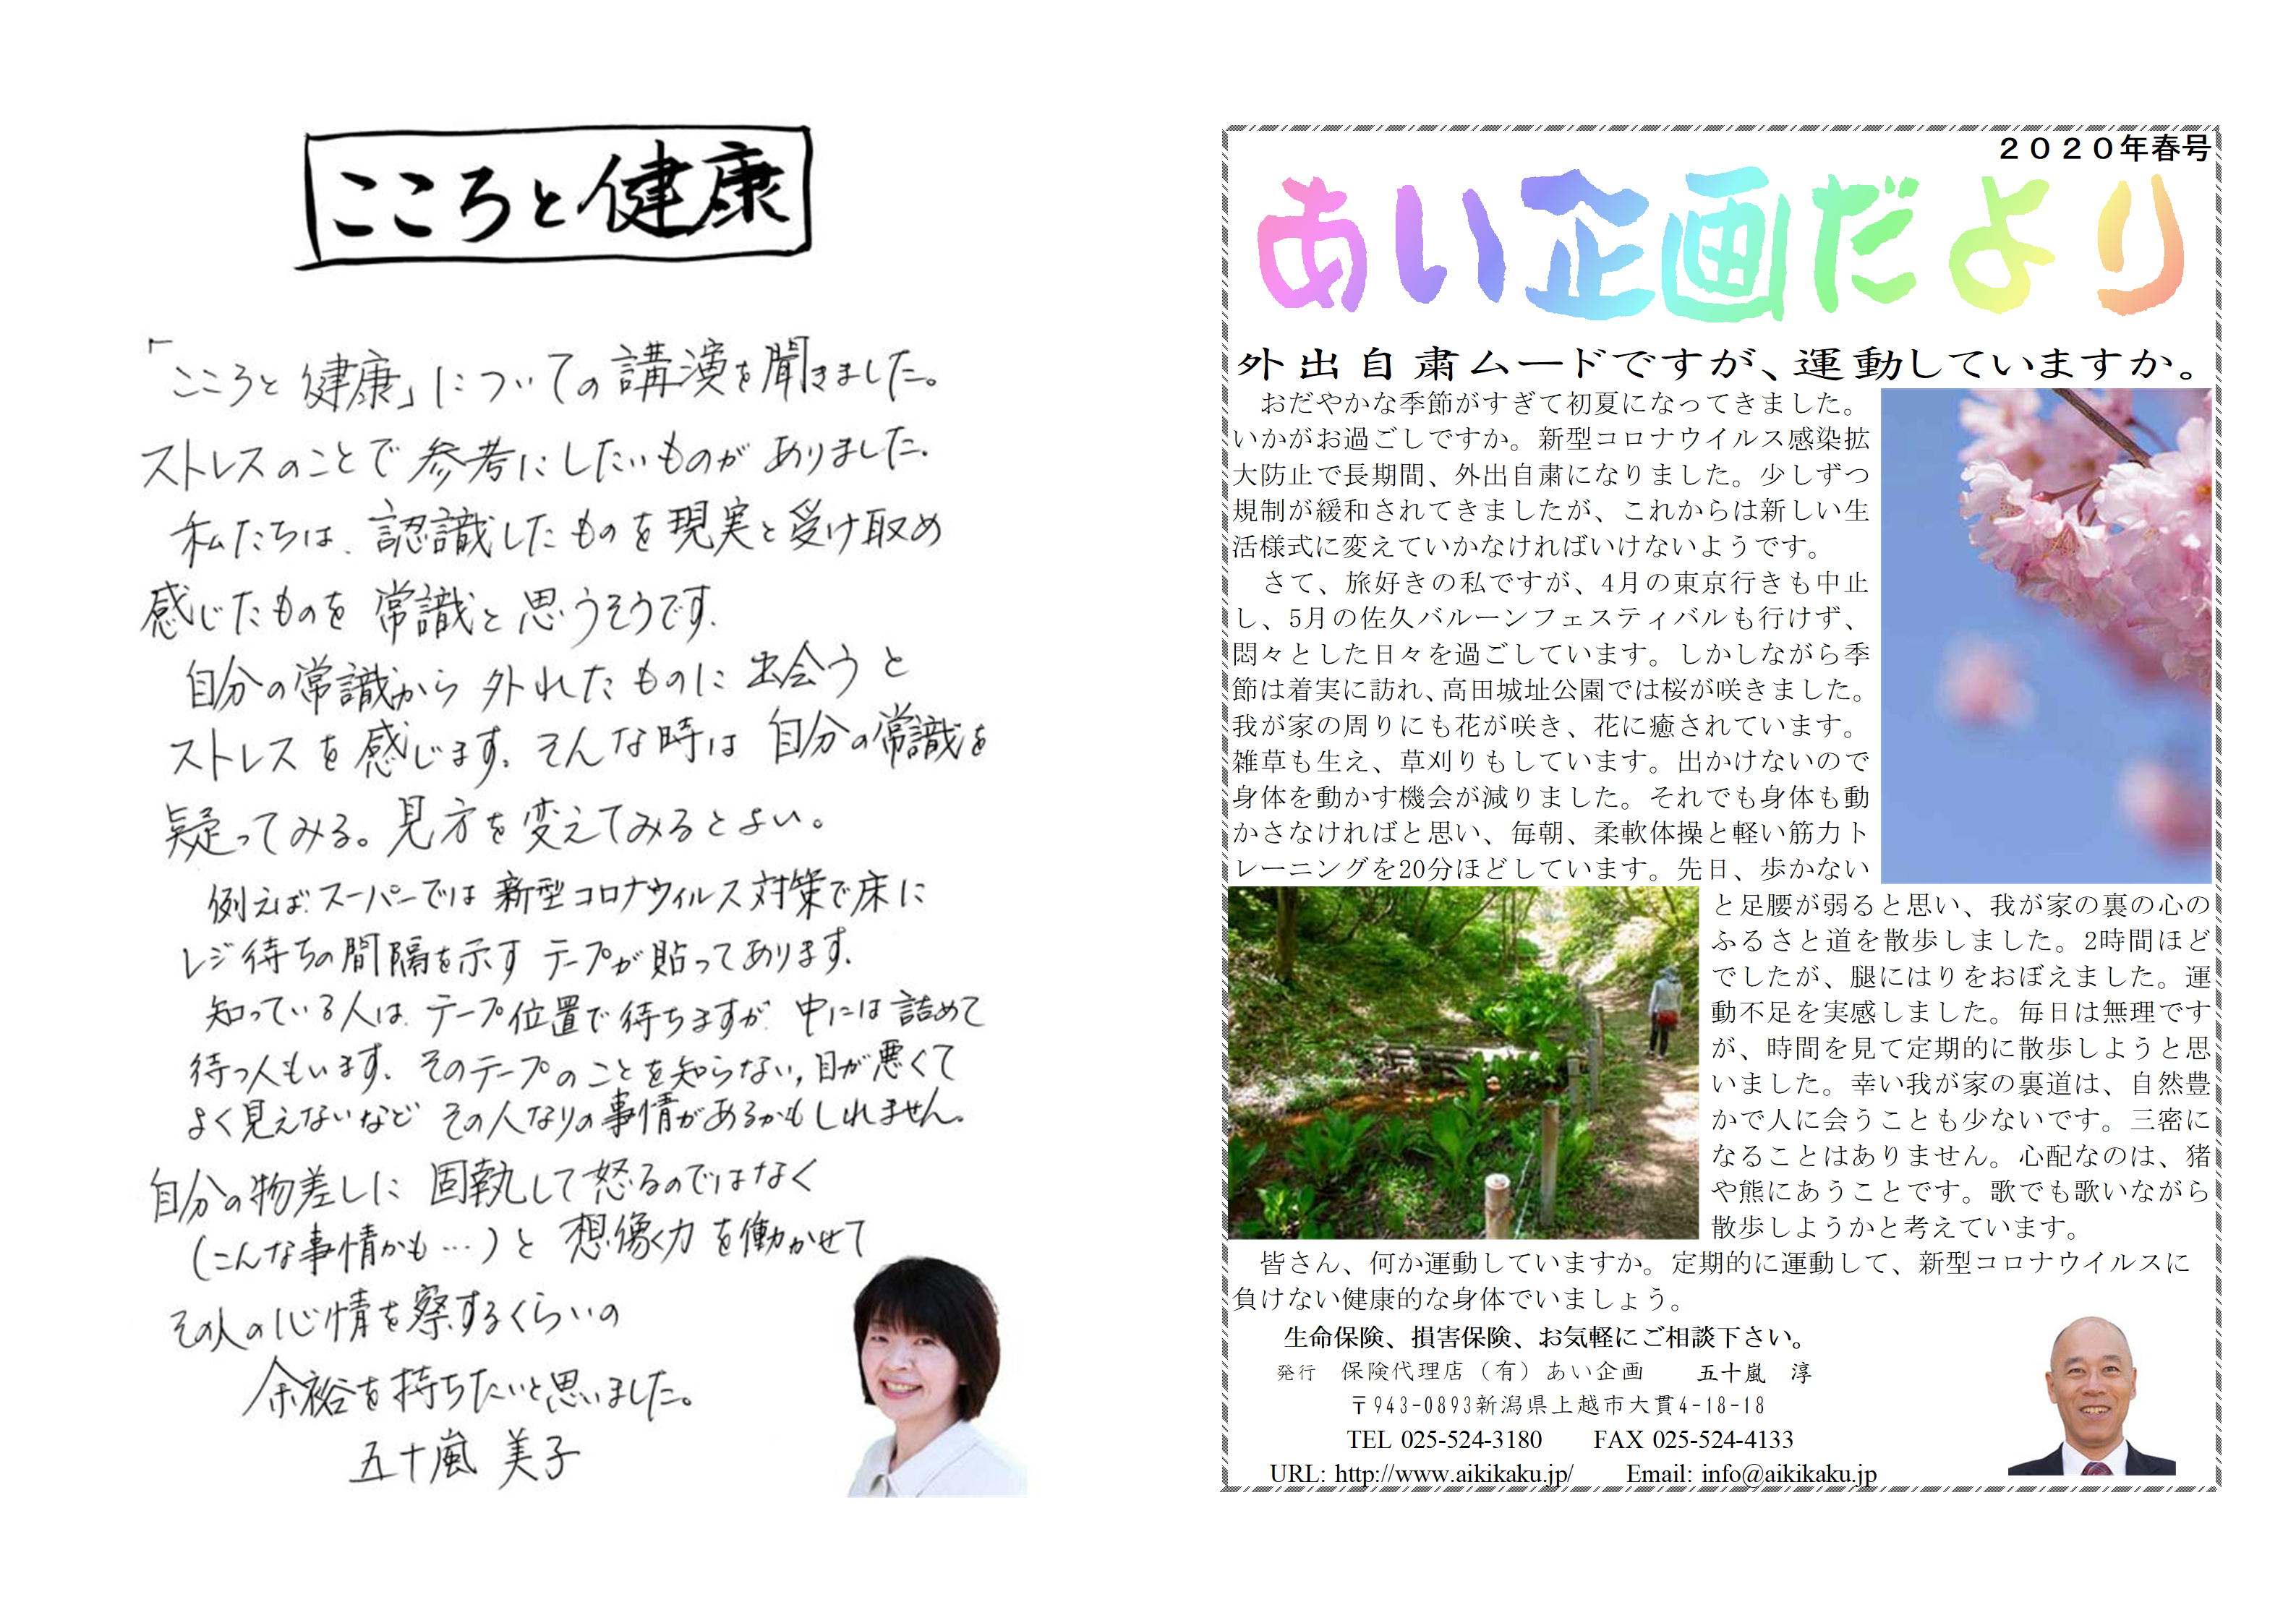 こころと健康
「こころと健康」についての講演を聞きました。
ストレスのことで参考にしたいものがありました.
私たちは、認識したものを現実と受け取め
感じたものを常識と思うそうです.
自分の常識から外れたものに出会うと
ストレスを感じます。そんな時は自分の常識を
疑ってみる。見方を変えてみるとよい。
例えば.スーパーでは新型コロナウィルス対策で床に
レジ待ちの間隔を示すテープが貼ってあります.
知っている人は.テープ位置で待ちますが.中には詰めて
待つ人もいます、そのテープのことを知らない,目が悪くて
よく見えないなどその人なりの事情があるかもしれません.
自分の物差しに固執して怒るのではなく
(こんな事情かも…)と想像力を働かせて
その人の心情を察するくらいの
余裕を持ちたいと思いました。
五十嵐 美子
2020年春号
あい企画だより
外出自粛ムードですが、運動していますか。
おだやかな季節がすぎて初夏になってきました。
いかがお過ごしですか。新型コロナウイルス感染拡
大防止で長期間、外出自粛になりました。少しずつ
規制が緩和されてきましたが、これからは新しい生
活様式に変えていかなければいけないようです。
さて、旅好きの私ですが、4月の東京行きも中止
し、5月の佐久バルーンフェスティバルも行けず、
悶々とした日々を過ごしています。しかしながら季
節は着実に訪れ、高田城址公園では桜が咲きました。
我が家の周りにも花が咲き、花に癒されています。
雑草も生え、草刈りもしています。出かけないので
身体を動かす機会が減りました。それでも身体も動
かさなければと思い、毎朝、柔軟体操と軽い筋力ト
レーニングを20分ほどしています。先日、歩かない
と足腰が弱ると思い、我が家の裏の心の
ふるさと道を散歩しました。2時間ほど
でしたが、腿にはりをおぼえました。運
動不足を実感しました。毎日は無理です
が、時間を見て定期的に散歩しようと思
いました。幸い我が家の裏道は、自然豊
かで人に会うことも少ないです。三密に
なることはありません。心配なのは、猪
や熊にあうことです。歌でも歌いながら
散歩しようかと考えています。
皆さん、何か運動していますか。定期的に運動して、新型コロナウイルスに
負けない健康的な身体でいましょう。
生命保険、損害保険、お気軽にご相談下さい。
発行 保険代理店（有）あい企画 五十嵐 淳
〒943-0893新潟県上越市大貫4-18-18
TEL 025-524-3180 FAX 025-524-4133
URL: http://www.aikikaku.jp/ Email: info@aikikaku.jp